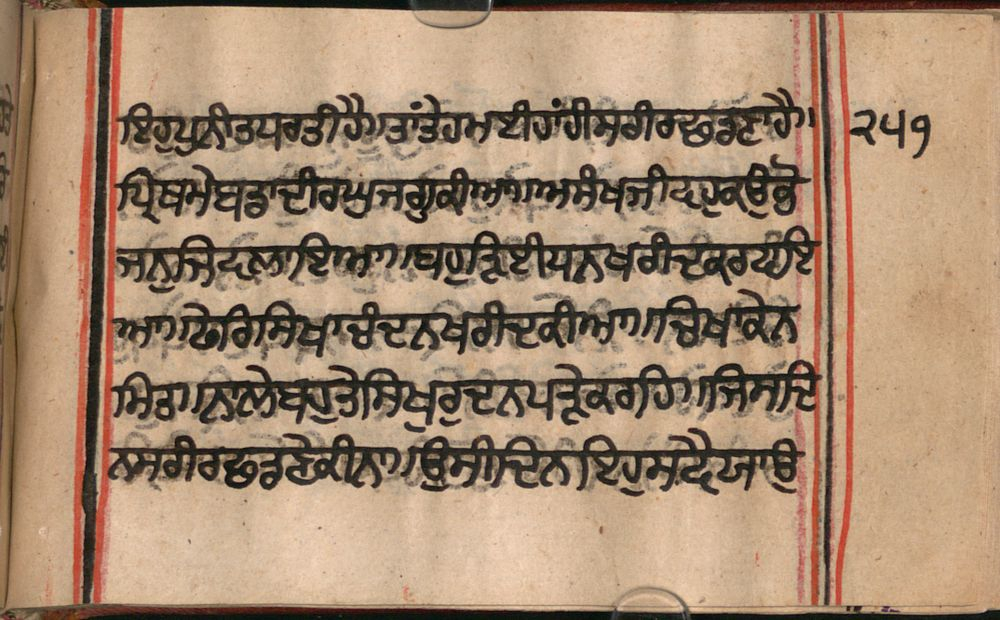 ਇਹੁਪੁਨੀਤਪਰਤੀਹੈ॥ਤਾਂਤੇਹਮਈਹਾਂਹੀਸਰੀਰਛਡਣਾਹੈ॥ ੨੫੧
ਪ੍ਰਿਥਮੇਬਡਾਦੀਰਘੁਜਗੁਕੀਆ॥ਅਸੰਖਜੀ
ਜਨੁ ॥ਬਹੁਤੁਈਧਨਖਰੀਦਕਰ
ਆ॥ਫੇਰਿਸਿਖਾਚੰਦਨਖਰੀਦਕੀਆ॥ਚਿਖਾਕੇਨ
ਮਿਤ॥ਨਾਲੇਬਹੁਤੇਸਿਖੁਰੁਦਨਪੜੇਕਰਹਿ॥ਜਿਸਦਿ
ਨਸਰੀਰਛਡਣੇਕੀਨਾ॥ਉਸੀਦਿਨਇਹੁਸਦੈਯਾਉ